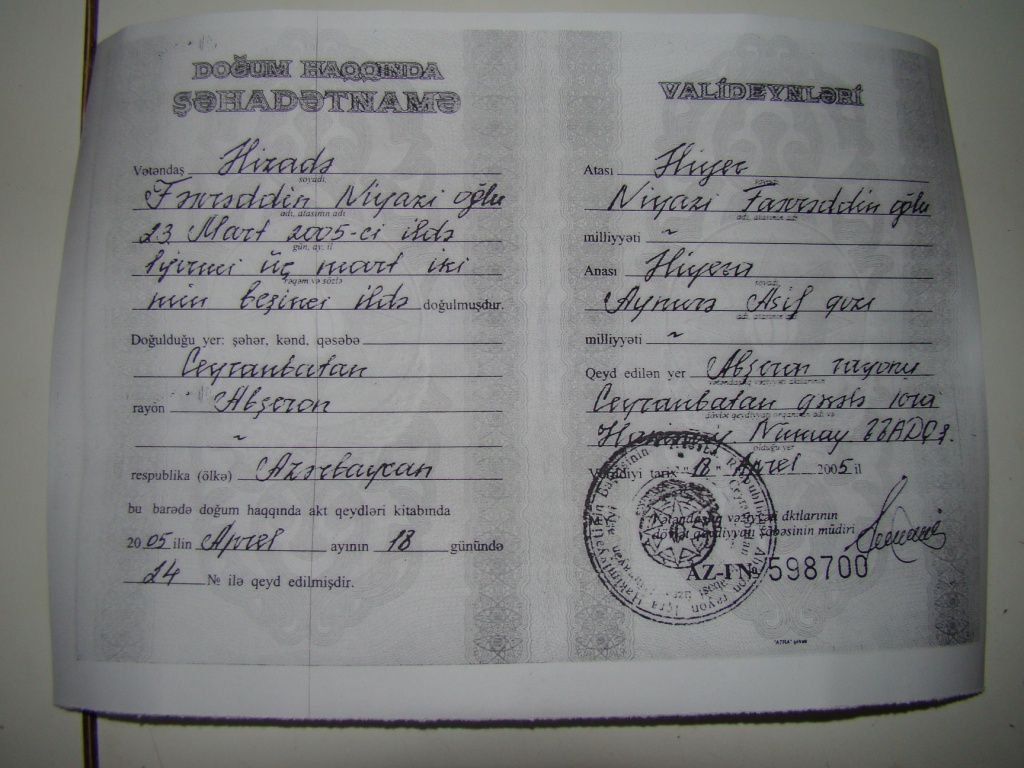 DOĞUM HAQQINDA
ŞƏHADƏTNAMƏ
Vətəndaş
soyadı
Niyazi oğlu
adı, atasının adı
23 Mart 2005-ci ildə
gün, ay, il
iyirmi üç mart iki
rəqəm və sözlə
min beşinci ildə doğulmuşdur.
Doğulduğu yer: şəhər, kənd, qəsəbə
Ceyranbatan
rayon Abşeron
~
respublika (ölkə) Azərbaycan
bu barədə doğum haqqında akt qeydləri kitabında
2005 ilin Aprel ayının 18 günündə
24 № ilə qeyd edilmişdir.
VALİDEYNLƏRİ
Atası
soyadı
Niyazi oğlu
adı, atasının adı
milliyyəti ~
Anası
soyadı
Aynurə Asif qızı
adı, atasının adı
milliyyəti ~
Qeyd edilən yer Abşeron rayonu
vətəndaşlıq vəziyyəti aktlarının
Ceyranbatan qəsəbə icra
dövlət qeydiyyatı orqanının adı və
olduğu yer
Verildiyi tarix "18" Aprel 2005 il
Vətəndaşlıq vəziyyəti aktlarının
dövlət qeydiyyatı şöbəsinin müdiri
AZ-I № 598700